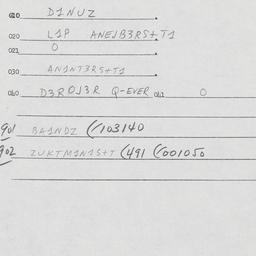 020 D1NUZ
020 L1P ANEJB3RS+T1
021 O
030 AN1NT3RS+T1
060 D3ROJ3R Q-EVER 061 O
901 BA1NDZ (/103140
902 ZUKTM1N1S+T (491 (/001050